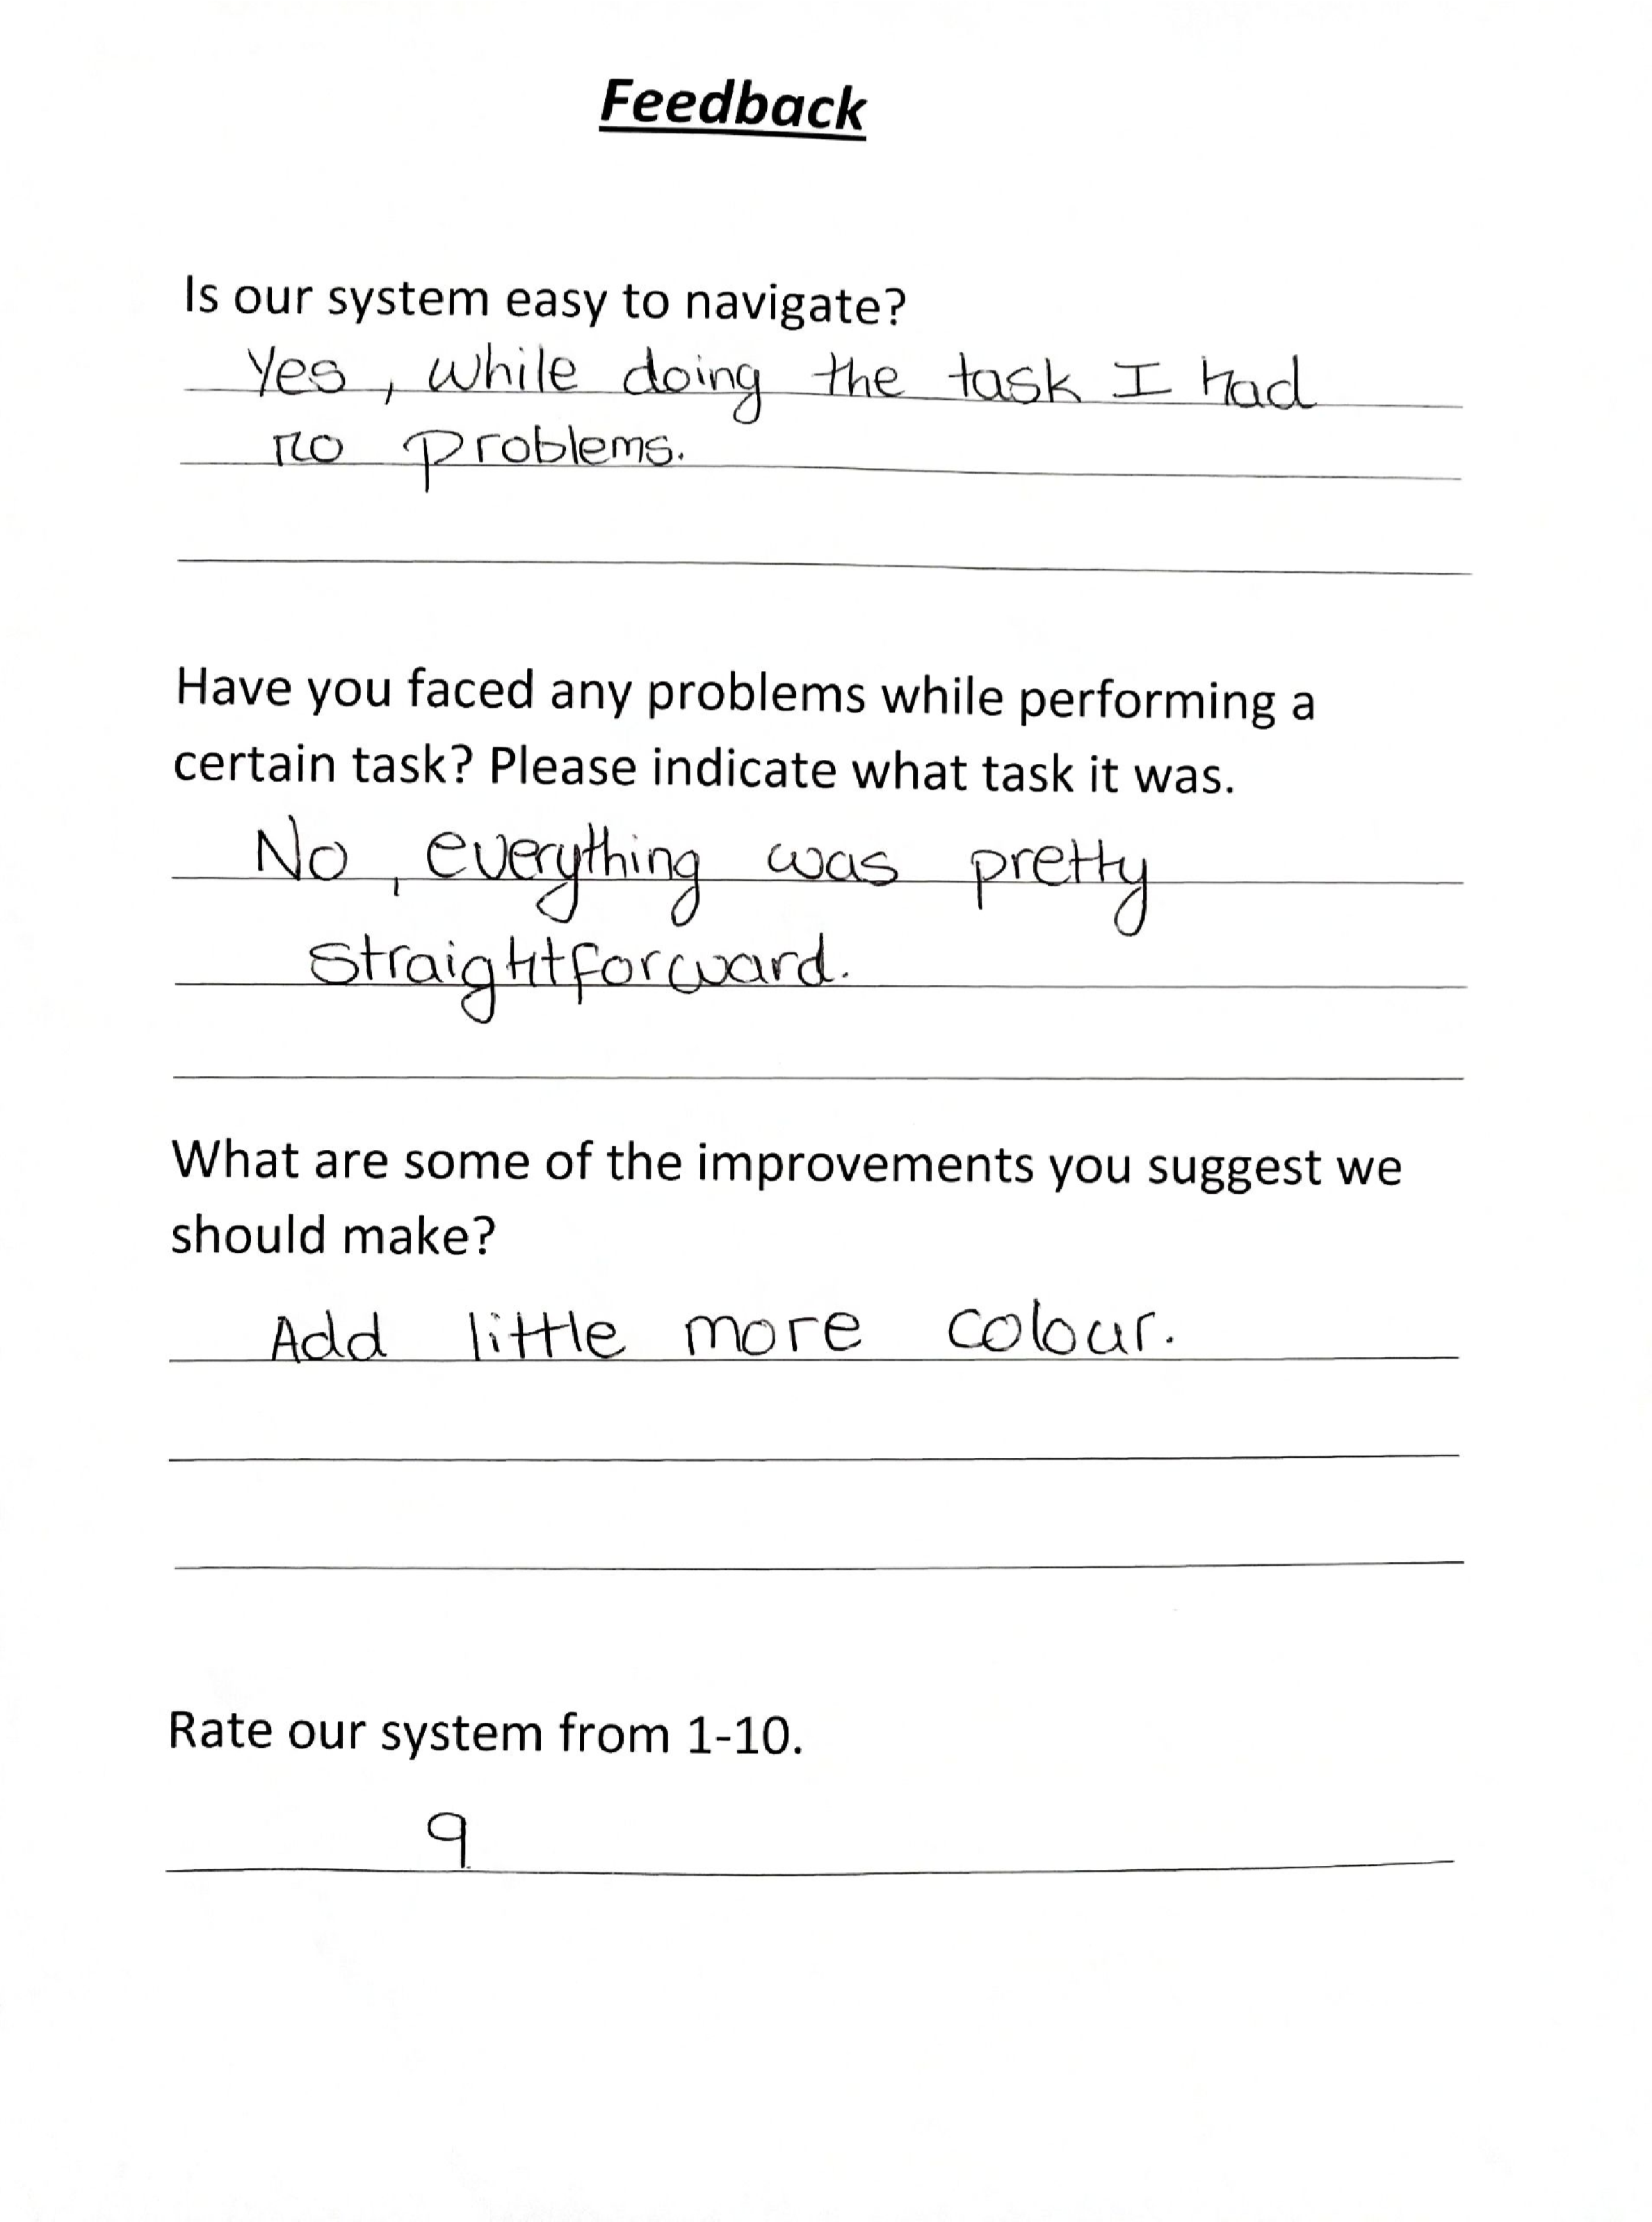 Feedback
Is our system easy to navigate?
Yes, while doing the task I had
no problems.
Have you faced any problems while performing a
certain task? Please indicate what task it was.
No, everything was pretty
straightforward.
What are some of the improvements you suggest we
should make?
Add little more colour.
Rate our system from 1-10.
9